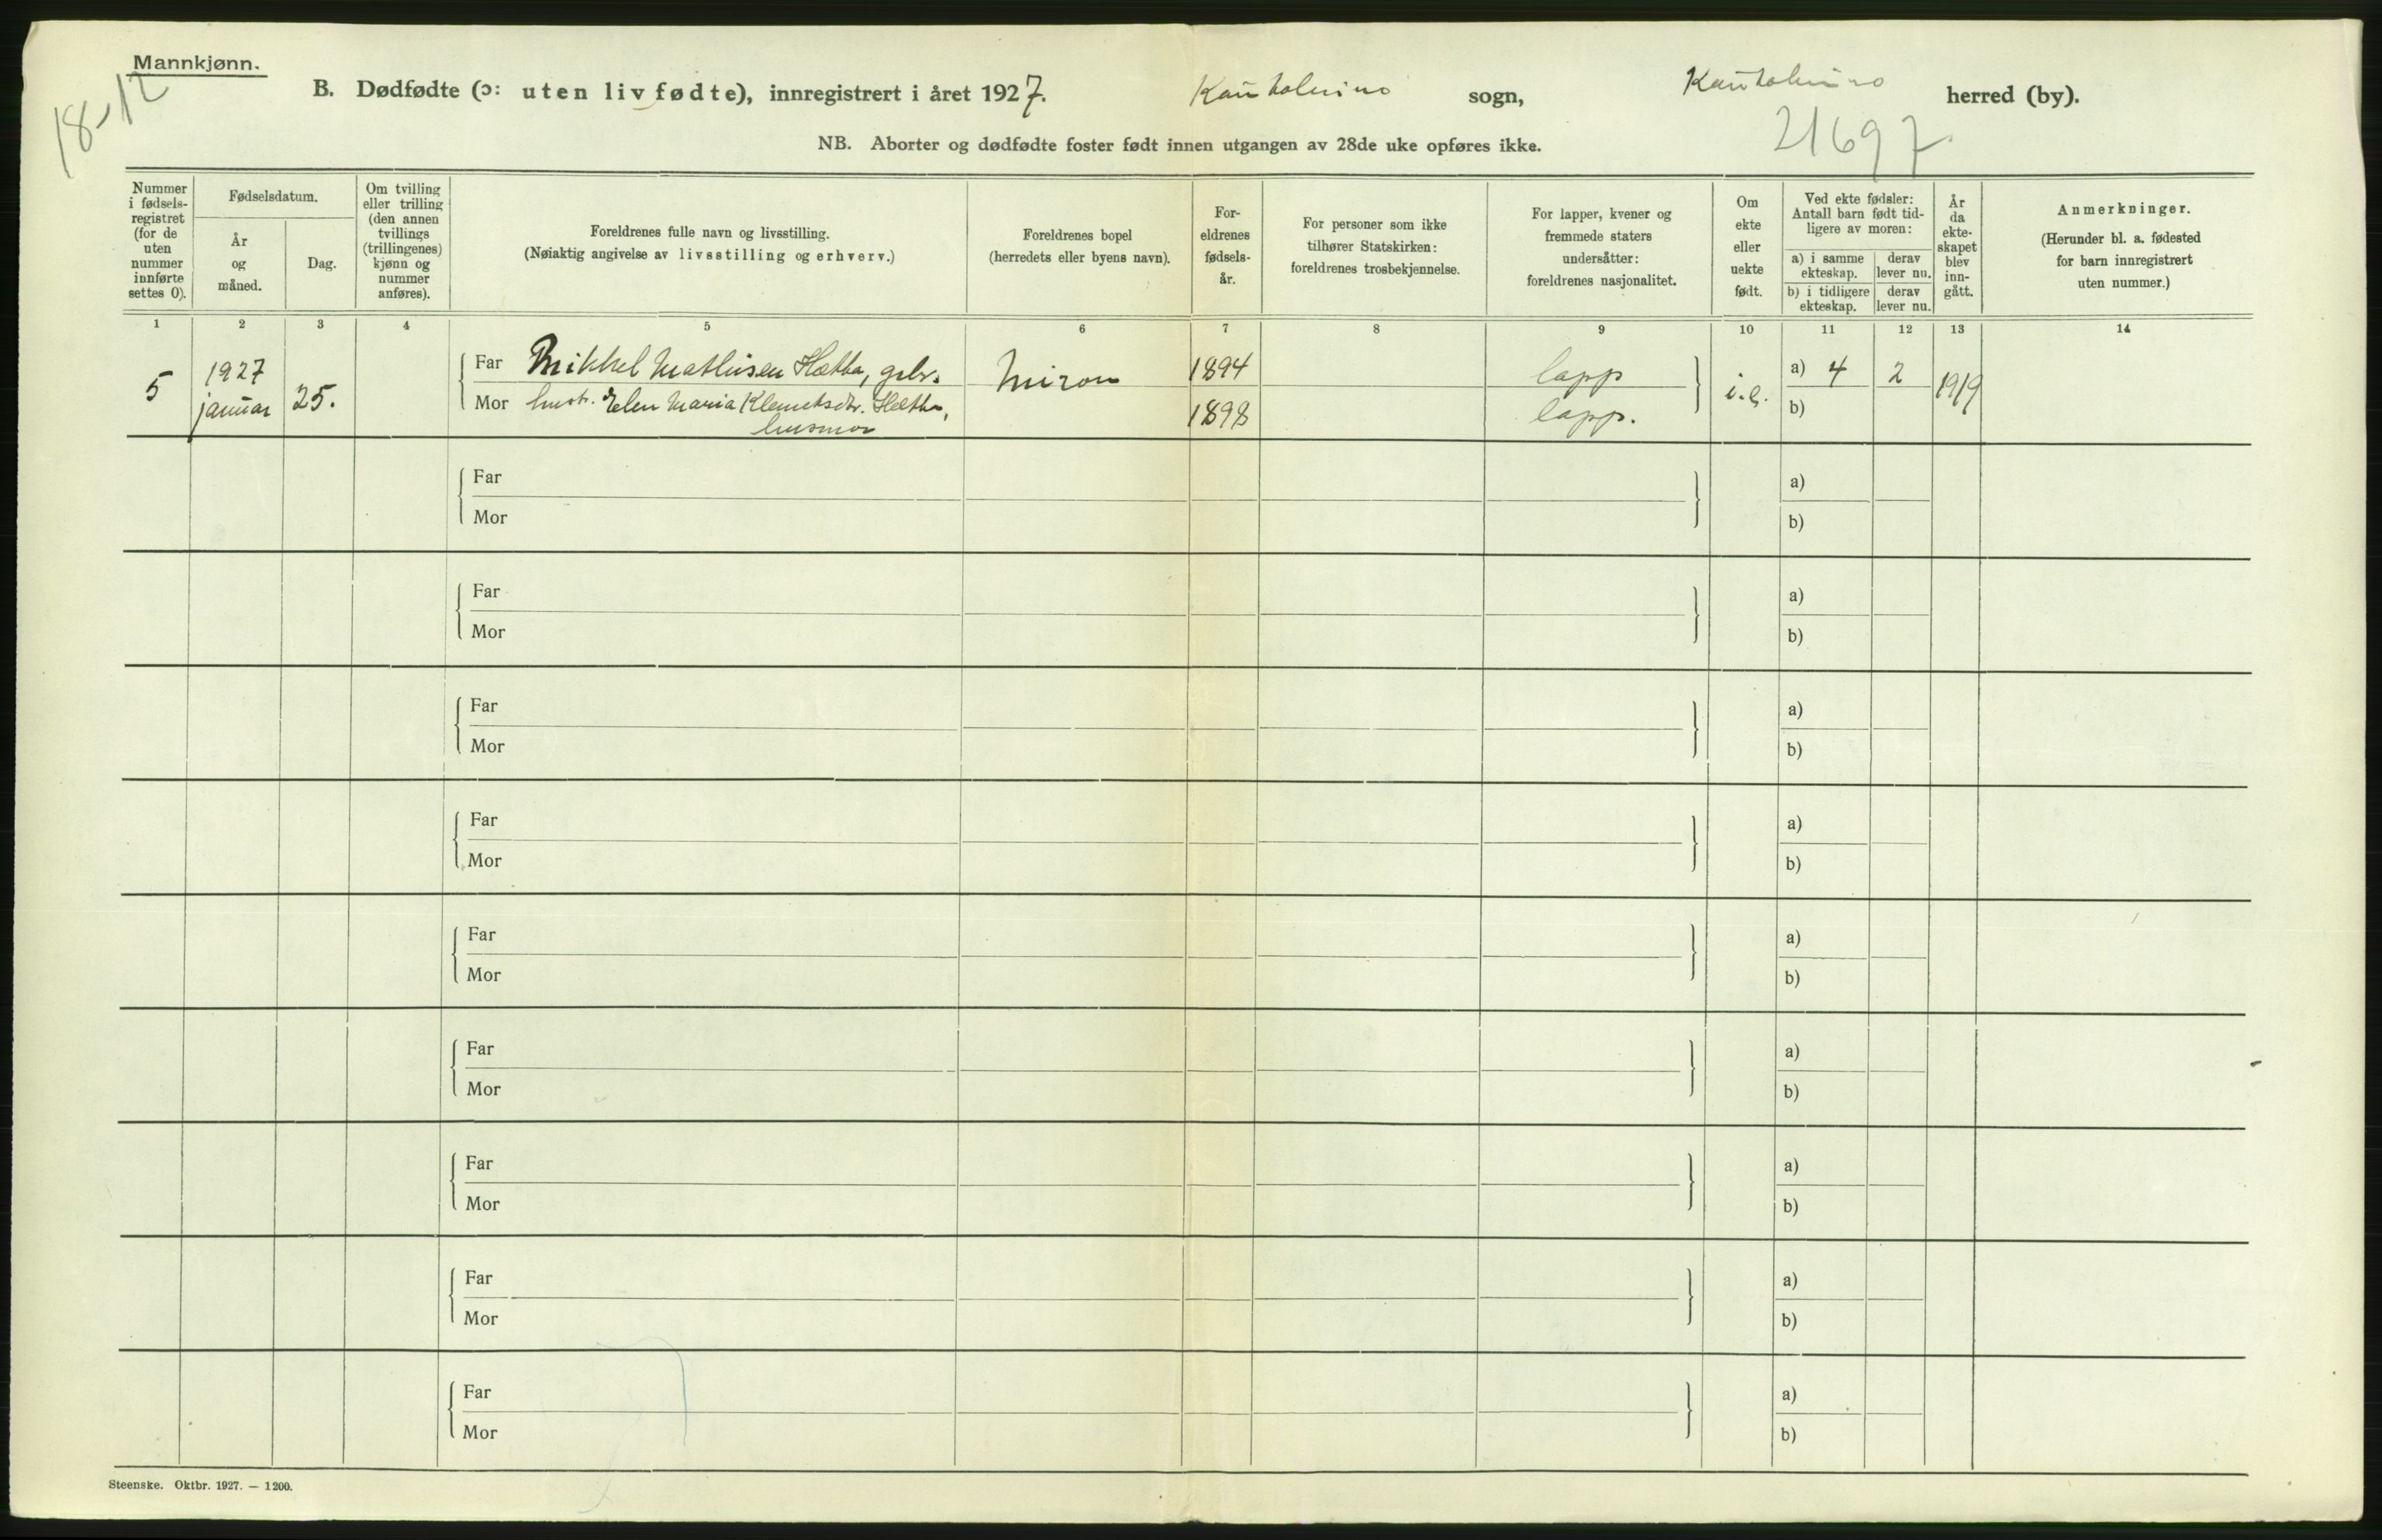 Mannkjønn.
18-12
B. Dødfødte (ɔ: uten liv fødte), innregistrert i året 1927. Kautokeino sogn, Kautokeino herred (by).
21697
NB. Aborter og dødfødte foster født innen utgangen av 28de uke opføres ikke.
Nummer i fødsels-registret (for de uten nummer innførte settes 0).
Fødselsdatum.
År og måned.
Dag.
Om tvilling eller trilling (den annen tvillings (trillingenes) kjønn og nummer anføres).
Foreldrenes fulle navn og livsstilling.
(Nøiaktig angivelse av livsstilling og erhverv.)
Foreldrenes bopel
(herredets eller byens navn).
For-eldrenes fødsels-år.
For personer som ikke tilhører Statskirken: foreldrenes trosbekjennelse.
For lapper, kvener og fremmede staters undersåtter: foreldrenes nasjonalitet.
Om ekte eller uekte født.
Ved ekte fødsler: Antall barn født tid-ligere av moren:
a) i samme ekteskap.
derav lever nu.
b) i tidligere ekteskap.
derav lever nu.
År da ekte-skapet blev inn-gått.
Anmerkninger.
(Herunder bl. a. fødested for barn innregistrert uten nummer.)
1 2 3 4 5 6 7 8 9 10 11 12 13 14
5 1927 januar 25.
Far Mikkel Mathisen Hætta, gbr. Mieron 1894 lapp i.e. a) 4 2 1919
Mor hustr. Elen Maria Klemetsdtr. Hætta, 1898 lapp. b)
husmor
Far a)
Mor b)
Far a)
Mor b)
Far a)
Mor b)
Far a)
Mor b)
Far a)
Mor b)
Far a)
Mor b)
Far a)
Mor b)
Far a)
Mor b)
Far a)
Mor b)
Steenske. Oktbr. 1927. — 1200.